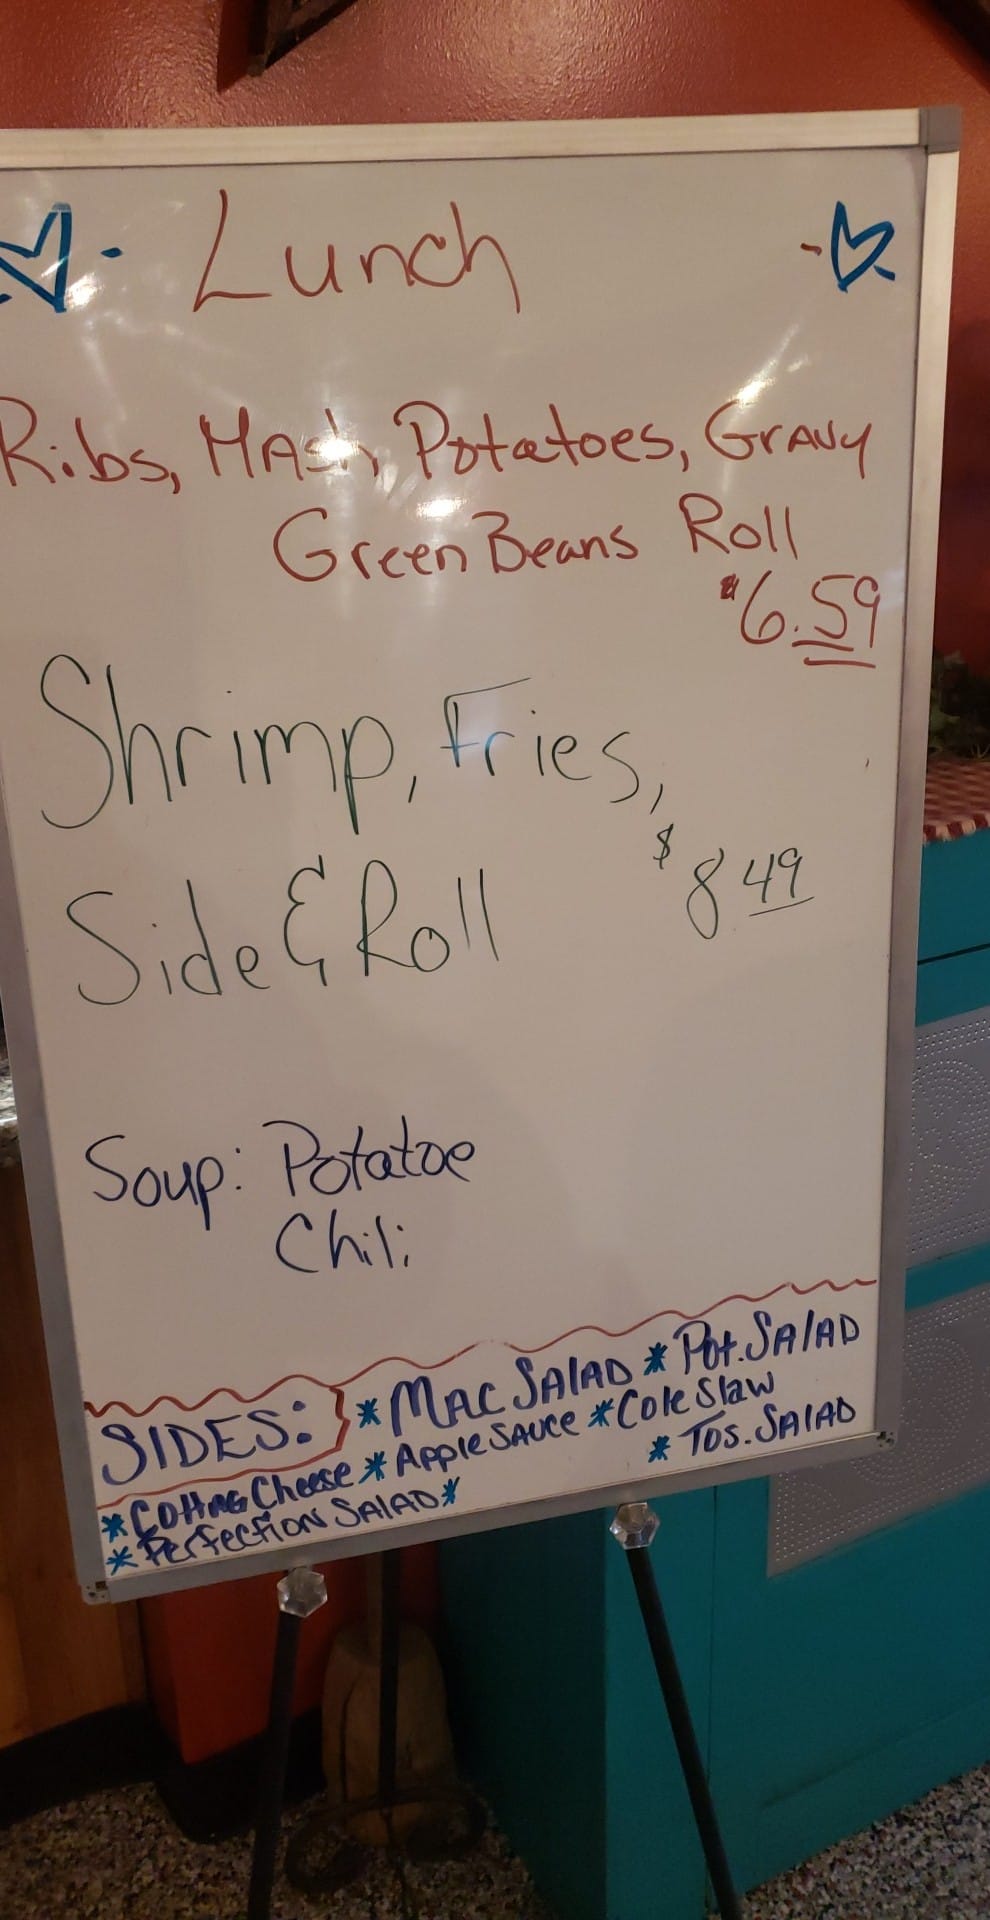 Lunch
Ribs, Mash Potatoes, Gravy
Green Beans Roll
$6.59
Shrimp, Fries,
Side & Roll $8 49
Soup: Potatoe
Chili
SIDES: * MAC SALAD * Pot. SALAD
* COTTAG Cheese * Apple SAUCE * Cole Slaw
* Perfection SALAD * * TOS. SALAD